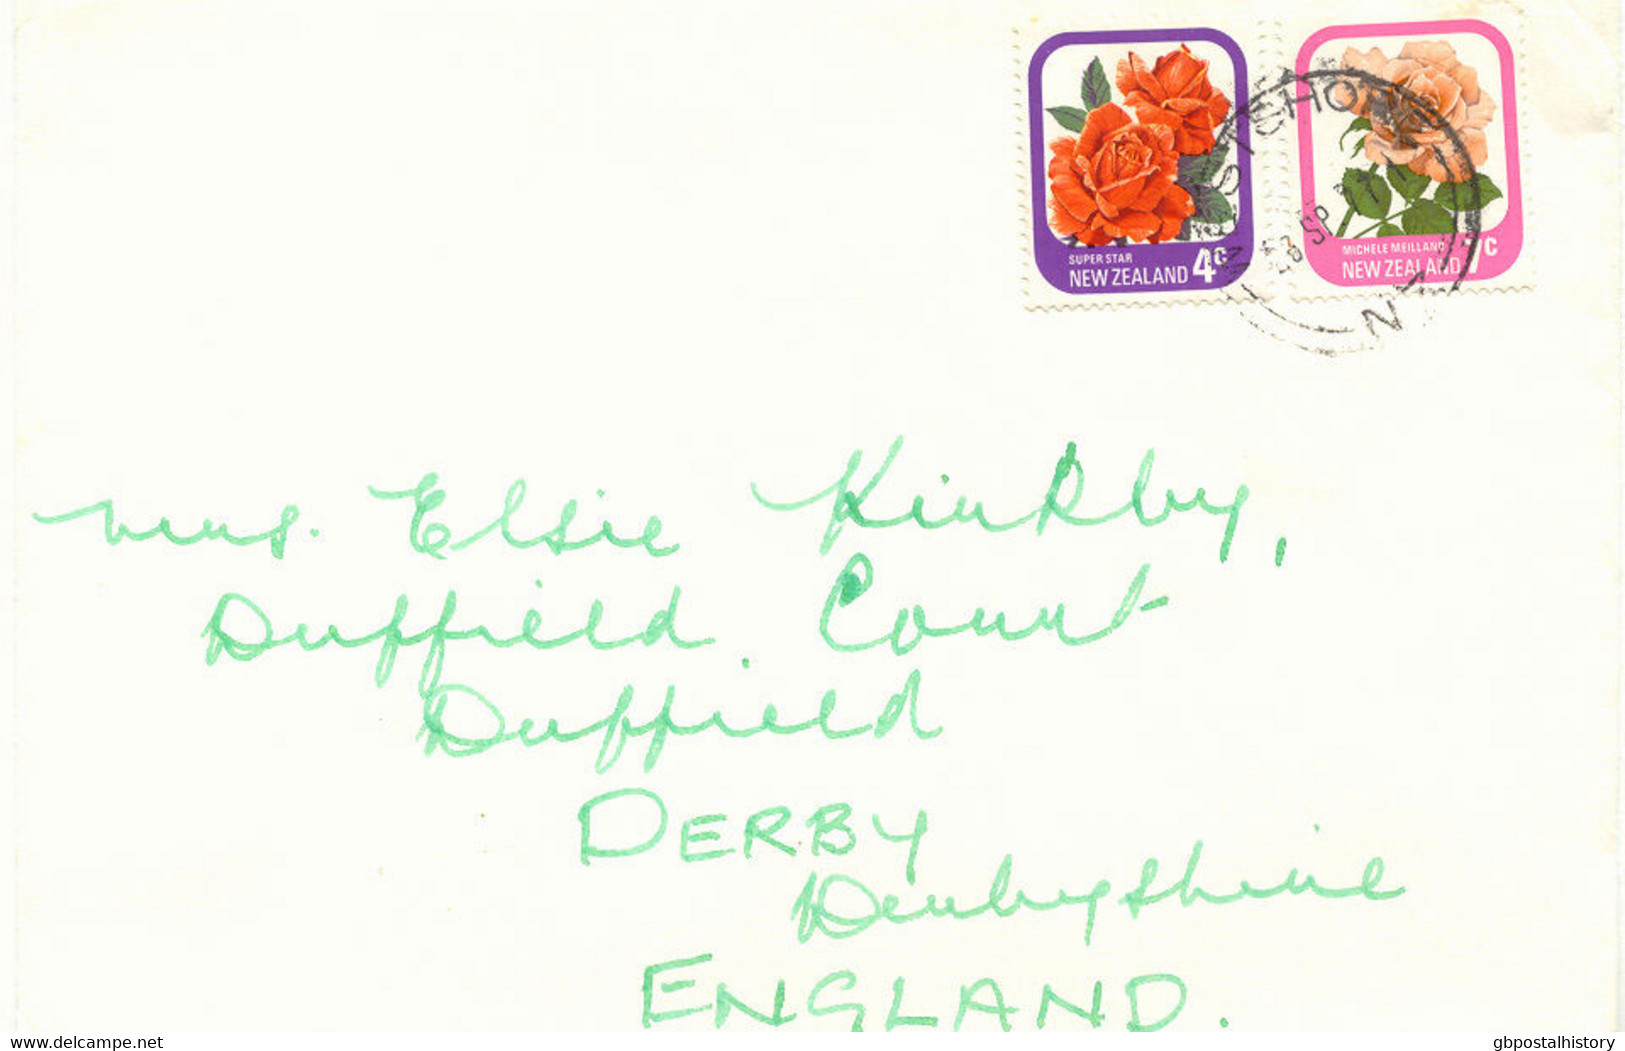 SUPER STAR
NEW ZEALAND 4c
MICHELE MEILLAND
NEW ZEALAND 7c
WESTSHORE
SP 77
N
Mrs. Elsie Kirkby,
Duffield Court
Duffield
DERBY
Derbyshire
ENGLAND.
www.delcampe.net
gbpostalhistory